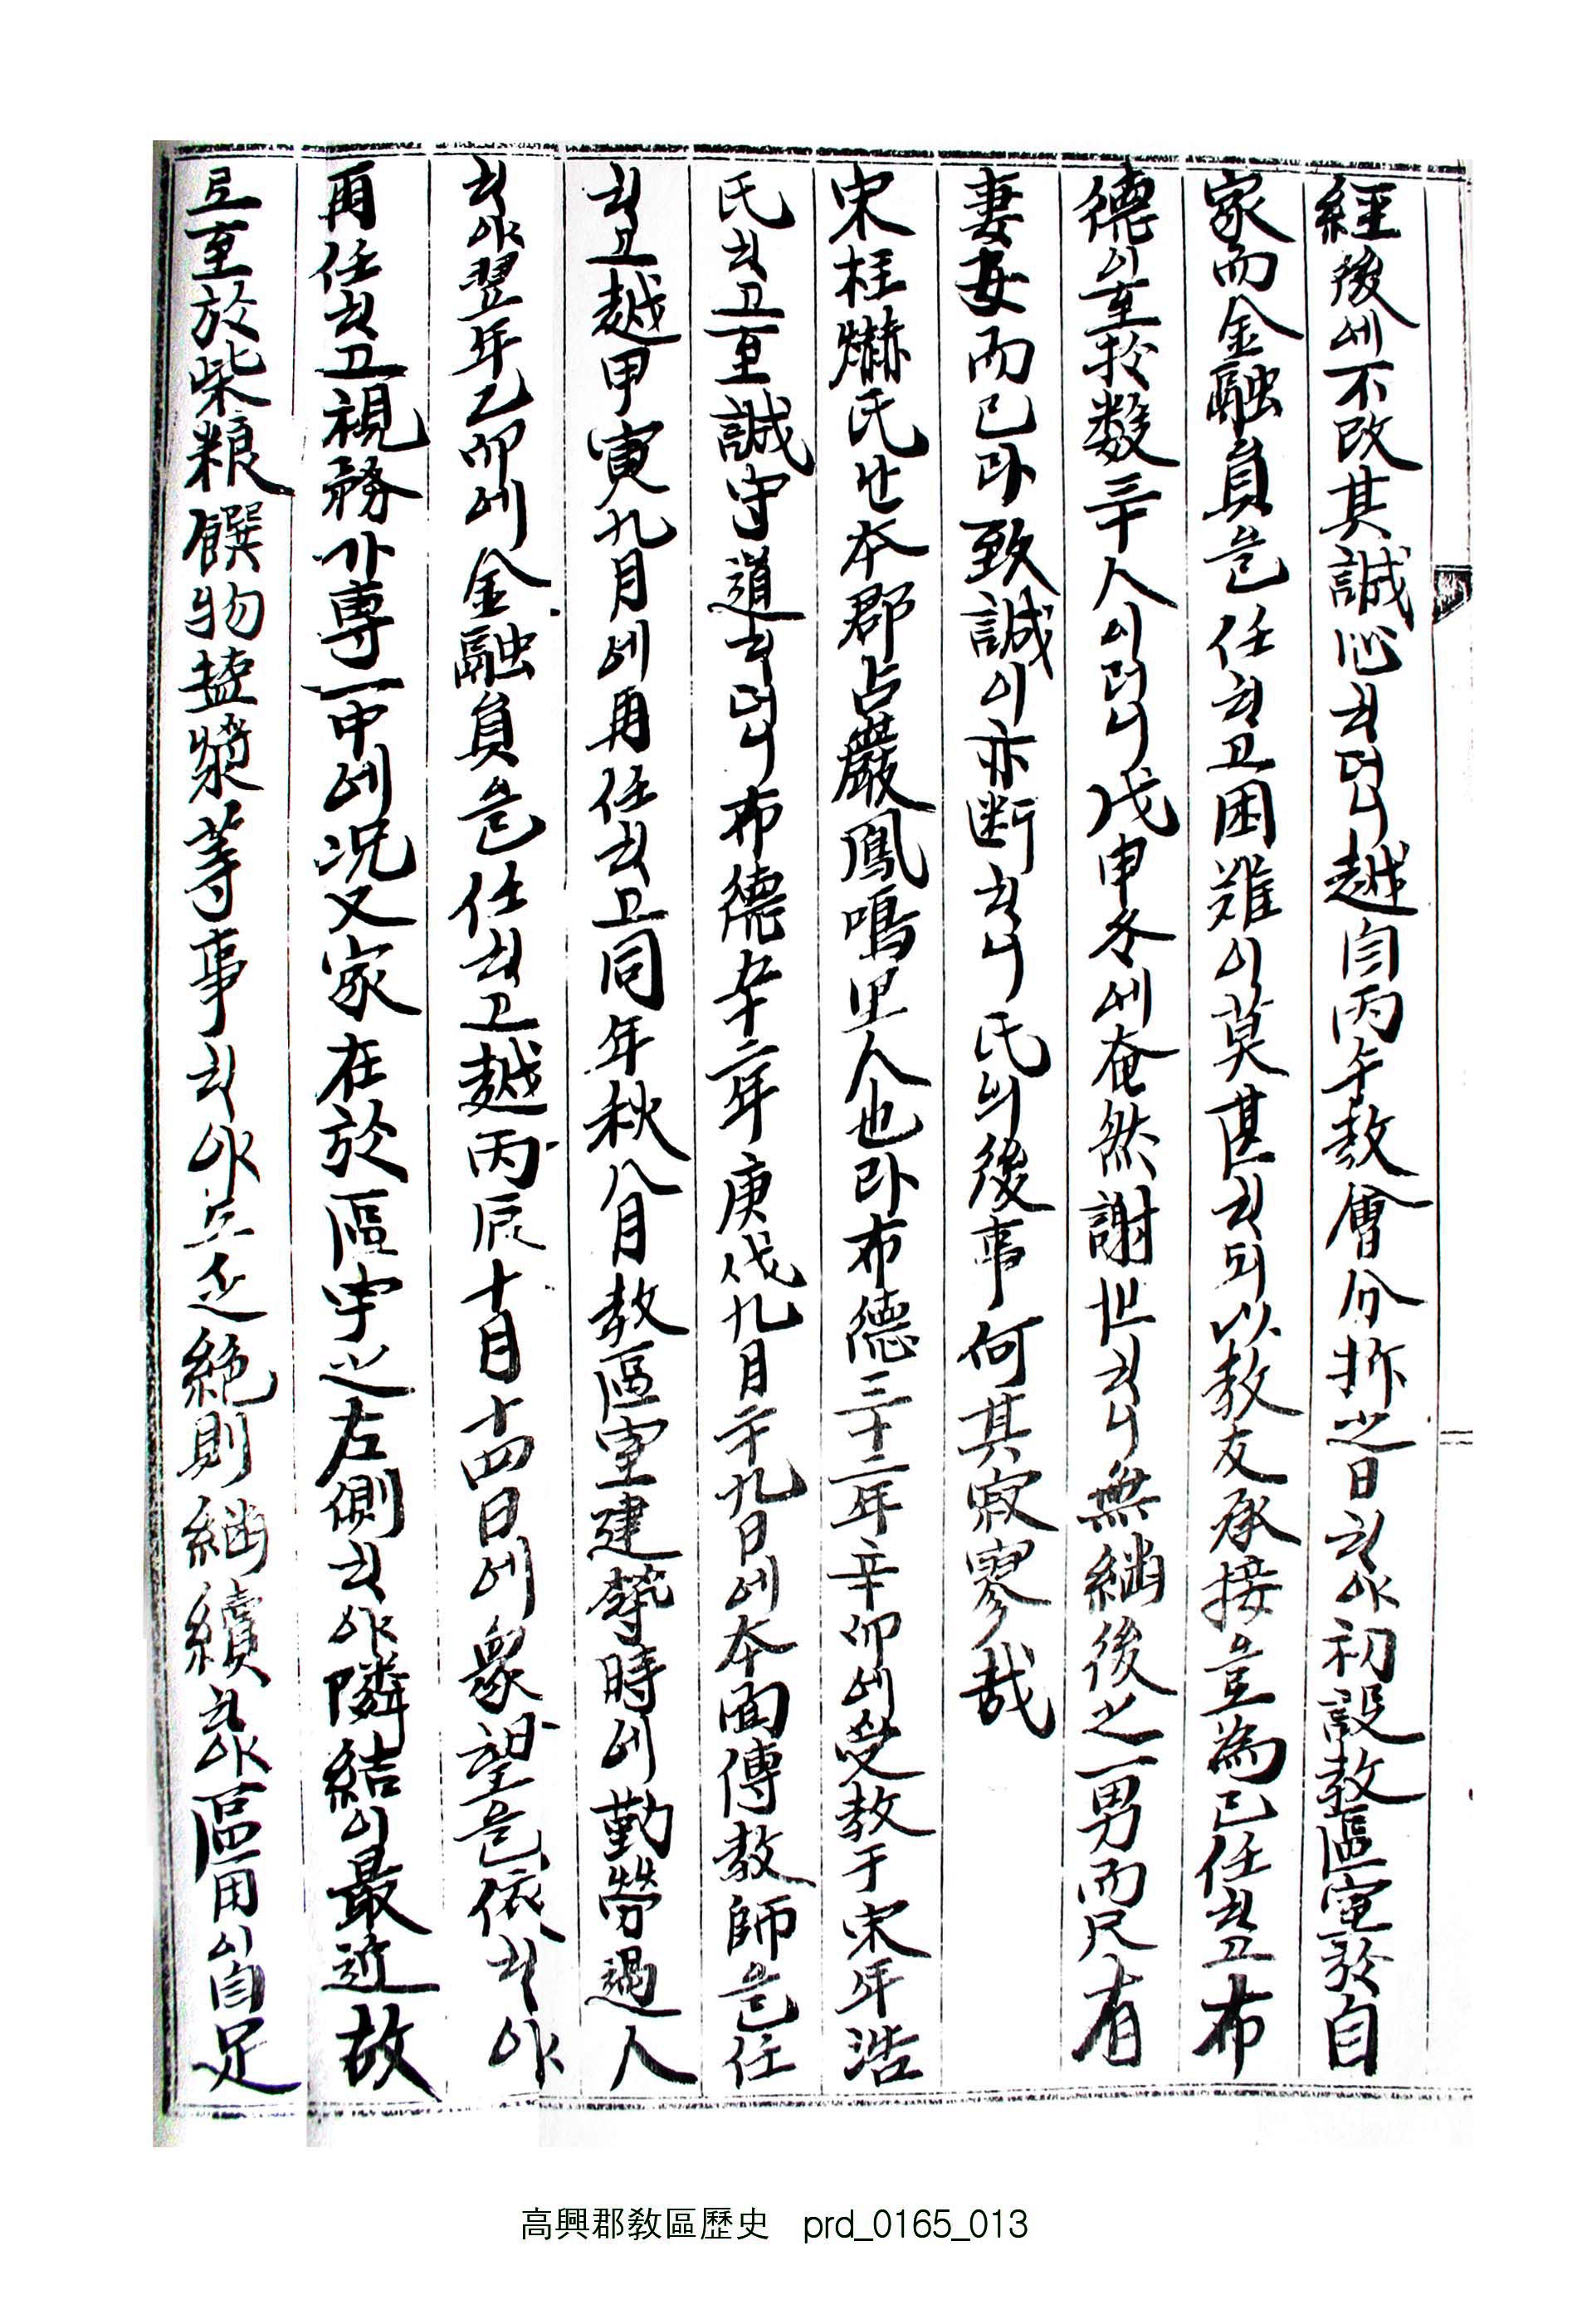 經後에不改其誠心하더니越自丙午教會分拆之日하야初設教區室於自
家而金融員으로任하고困難이莫甚하되以教友承接으로為己任하고布
德이至於数三十人이러니戊申冬에奄然謝世하니無繼後之一男而只有
妻女而已라致誠이亦断하니氏의後事何其寂寥哉
宋桂爀氏난本郡占巖鳳鳴里人也라布德三十二年辛卯에受教于宋年浩
氏하고至誠守道하더니布德五十一年庚戌九月二十九日에本面傳教師로任
하고越甲寅九月에再任하고同年秋八月教區室建築時에勤勞過人
하야翌年乙卯에金融員으로任하고越丙辰十月十四日에衆望을依하야
再任하고視務가專一中에况又家在於區宇之左側하야隣結이最近故
로至於柴粮饌物盐漿等事하야도乏絶則繼續하야區用이自足
高興郡敎區歷史 prd_0165_013